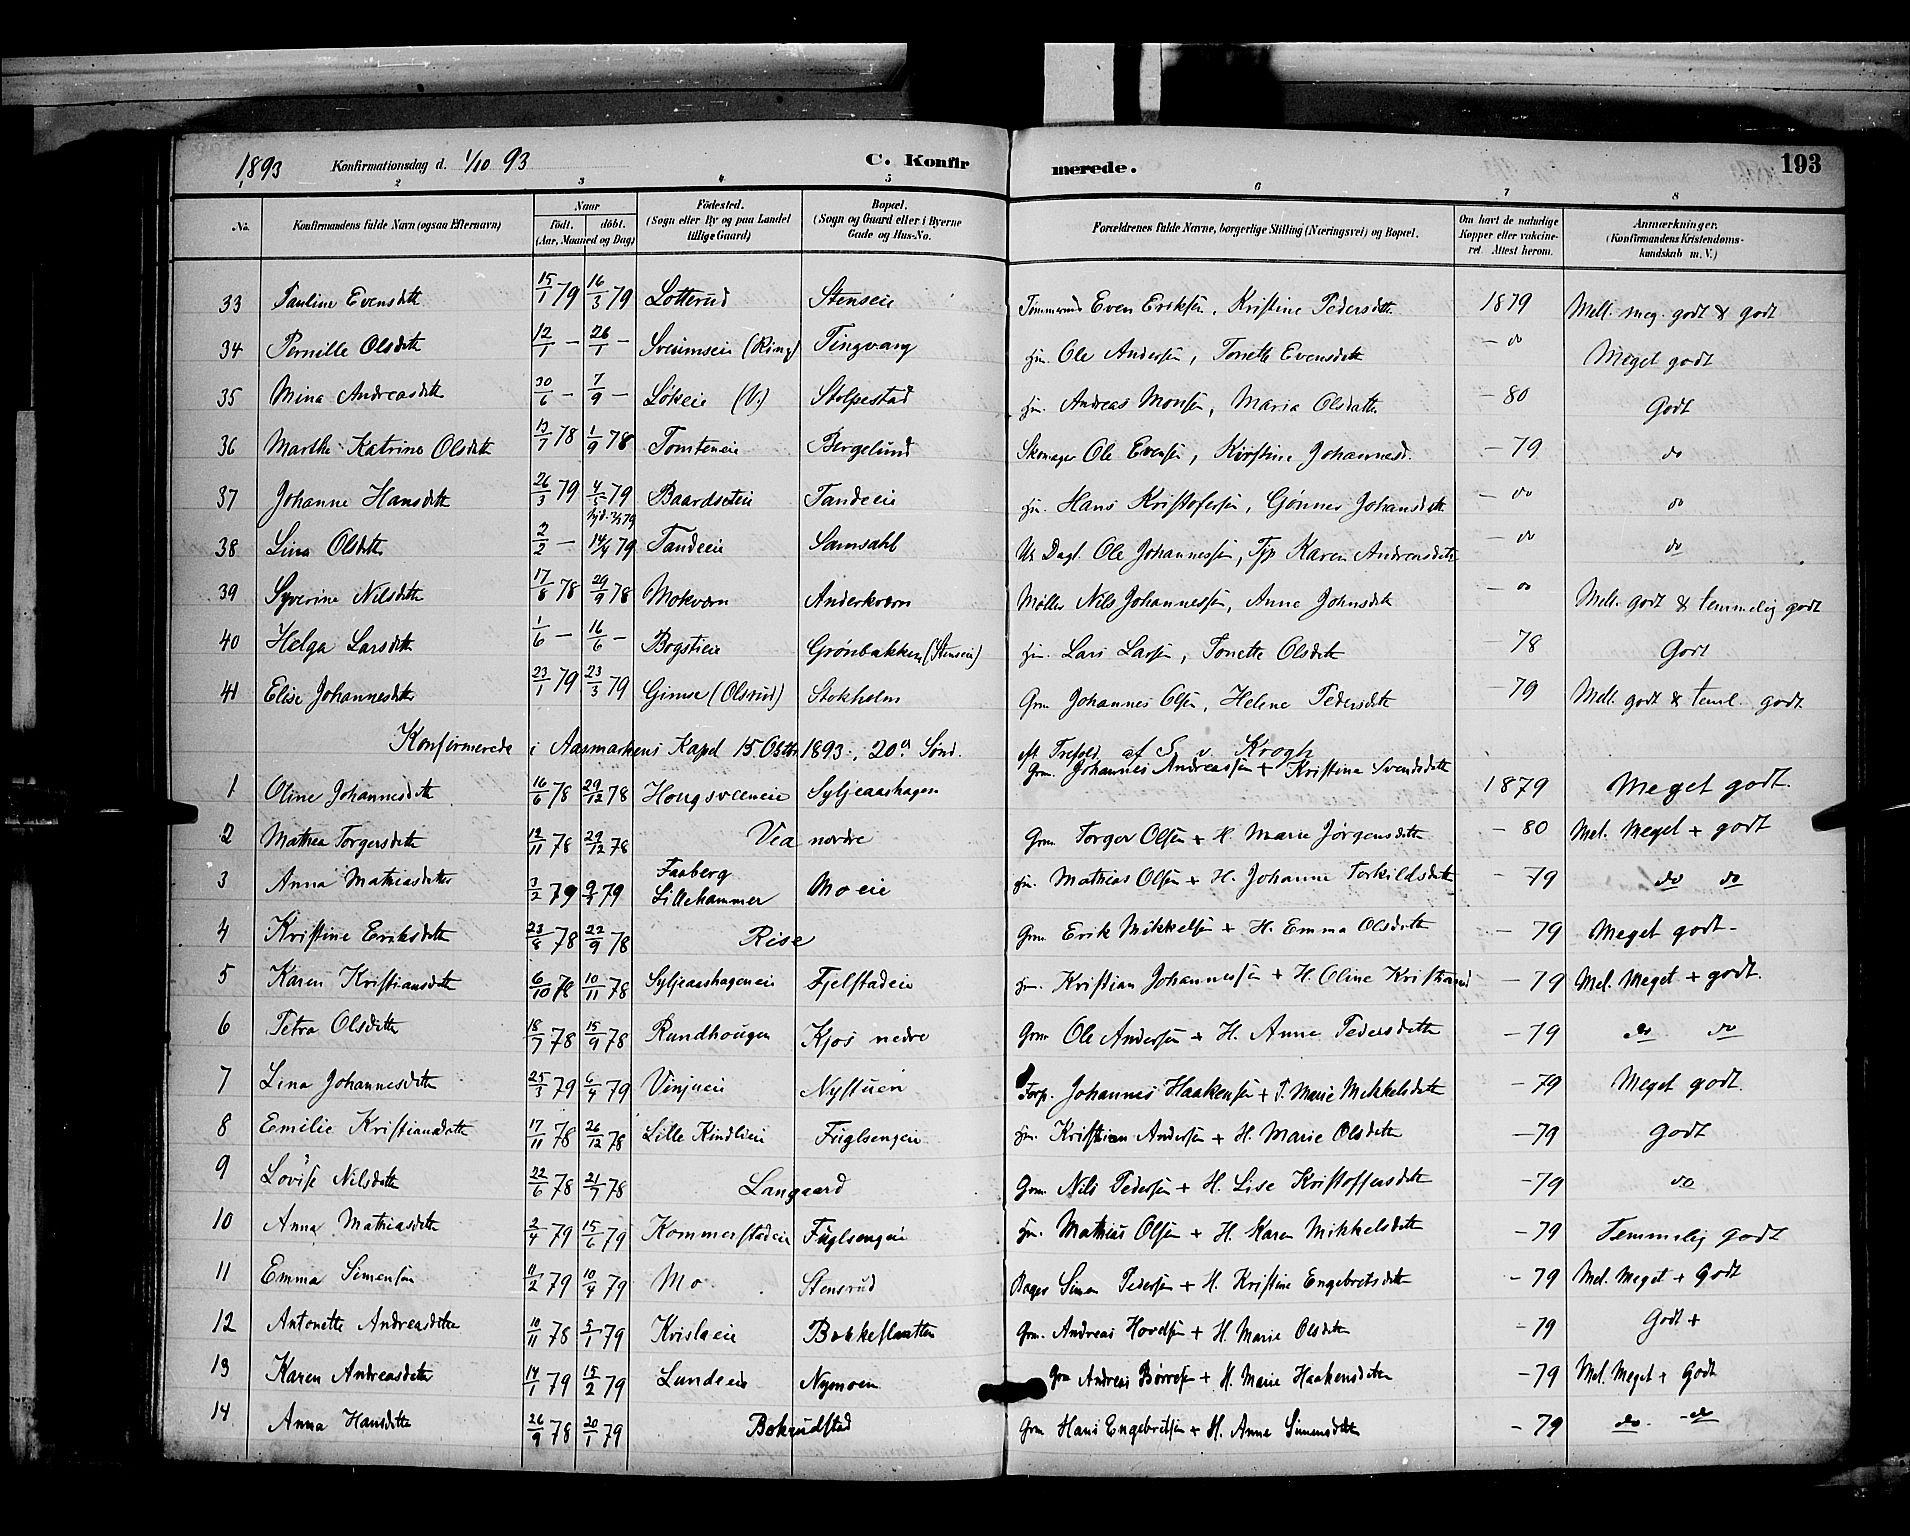 1893 Konfirmationsdag d. 1/10 93 C. Konfir merede. 193
2 3 4 5 6 7 8
No. Konfirmandens fulde Navn (ogsaa Efternavn) Naar født. døbt. (Aar, Maaned og Dag) Fødested. (Sogn eller By og paa Landet tillige Gaard) Bopæl. (Sogn og Gaard eller i Byerne Gade og Hus-No. Forældrenes fulde Navne, borgerlige Stilling (Næringsvei) og Bopæl. Om havt de naturlige Kopper eller vakcineret. Attest herom. Anmærkninger. (Konfirmandens Kristendomskundskab m. V.)
33 Pauline Evensdtt 15/1 79 16/3 79 Lotterud Stenseie Tømmermd Even Eriksen, Kristine Pedersdtt 1879 Mell. meg. godt & godt
34 Pernille Olsdtt 12/1 — 26/1 — Sveumseie (Ring) Tingvang Hm. Ole Andersen, Tonette Evensdtt — do Meget godt
35 Mina Andreasdtt 30/6 — 7/9 — Løkeie (V.) Stolpestad Hm. Andreas Monsen, Maria Olsdatter — 80 Godt
36 Marthe Katrine Olsdtt 13/7 78 1/9 78 Tomteneie Bergelund Skomager Ole Evensen, Kirstine Johannesd. — 79 do
37 Johanne Hansdtt 26/3 79 4/5 79 Baardseteie Tandeeie Hm. Hans Kristofersen, Gønner Johansdtt — do do
38 Lina Olsdtt 2/2 — 14/4 79 Tandeeie Samsahl Uk Dagl. Ole Johannessen, Tjp Karen Andreasdtt — do do
39 Syverine Nilsdtt 17/8 78 29/9 78 Mokværn Anderkværn Møller Nils Johannessen, Anne Johnsdtt — do Mell. godt & temmelig godt
40 Helga Larsdtt 1/6 — 16/6 — Bogstieie Grønbakken (Stenseie) Hm. Lars Larsen, Tonette Olsdtt — 78 Godt
41 Elise Johannesdtt 23/1 79 23/3 79 Gimse (Olsrud) Stokholm Grm Johannes Olsen, Helene Pedersdtt — 79 Mell. godt & teml. godt
Konfirmerede i Aasmarkens Kapel 15 Oktbr 1893, 20de Sønd. eft Trefold. af S. v. Krogh
1 Oline Johannesdtt 16/6 78 29/12 78 Hougsveeneie Syljeaashagen Grm. Johannes Andreassen + Kristine Svendsdtt 1879 Meget godt.
2 Mathea Torgersdtt 12/11 78 29/12 78 Vea nordre Grm. Torger Olsen + H. Marie Jørgensdtt — 80 Mel. Meget + godt
3 Anna Mathiasdtt 3/2 79 9/4 79 Faaberg Lillehammer Moeie Hm. Mathias Olsen + H. Johanne Torkildsdtt — 79 do do
4 Kristine Eriksdtt 23/8 78 22/9 78 Rise Grm. Erik Mikkelsen + H. Emma Olsdtt — 79 Meget godt
5 Karen Kristiansdtt 6/10 78 10/11 78 Syljeaashageneie Fjelstadeie Hm. Kristian Johannessen + H. Oline Kristiansd — 79 Mel. Meget + godt.
6 Petra Olsdtt 18/7 78 15/9 78 Rundhougen Kjos nedre Grm Ole Andersen + H. Anne Pedersdtt — 79 do do
7 Lina Johannesdtt 25/3 79 6/4 79 Vinjueie Nystuen Forp. Johannes Haakensen + T. Marie Mikkelsdtt — 79 Meget godt.
8 Emilie Kristiansdtt 17/11 78 26/12 78 Lille Kindlieie Fuglsengeie Hm. Kristian Andersen + H. Marie Olsdtt — 79 Godt
9 Lovise Nilsdtt 22/6 78 21/7 78 Langaard Grm. Nils Pedersen + H. Lise Kristoffersdtt — 79 do
10 Anna Mathiasdtt 2/4 79 15/6 79 Kommerstadeie Fuglsengeie Hm. Mathias Olsen + H. Karen Mikkelsdtt — 79 Temmelig godt
11 Emma Simensen 11/2 79 10/4 79 Mo Stensrud Bager Simen Pedersen + H. Kristine Engebretsdtt — 79 Mel. Meget + Godt
12 Antonette Andreasdtt 10/11 78 5/1 79 Krislaeie Bakkesletten Grm. Andreas Hovdsen + H. Marie Olsdtt — 79 Godt +
13 Karen Andreasdtt 14/1 79 15/2 79 Lundeeie Nymoen Grm Andreas Børresen + H. Marie Haakensdtt — 79 Mel. Meget + Godt
14 Anna Hansdtt 26/9 78 20/1 79 Bokrudstad Grm Hans Engebretsen + H. Anne Simensdtt — 79 do do